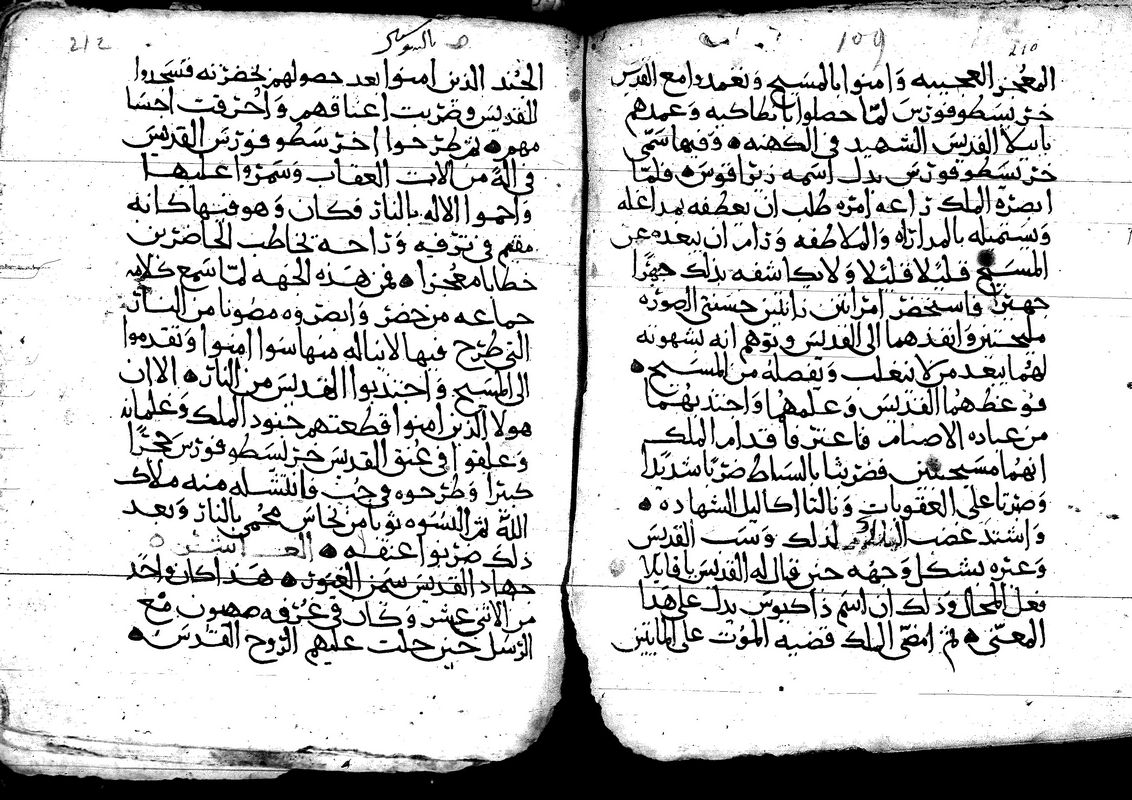 109
210
المعجز العجيبه وامنوا بالمسيح وتعمدوا مع القديس
خرسطوفورس لما حصلوا بانطاكيه وعمدهم
بابيلا القديس الشهيد في الكهنه وفيها سمى
خرسطوفورس بدل اسمه ربرافوس فلما
ابصره الملك راعه امره طلب ان يعطفه بمداغله
ويستميله بالمداراه والملاطفه ورام ان يبعده عن
المسيح قليلا قليلا ولا يكاشفه بذلك جهرا
واستحضر امراتين زانيتين حسنتي الصوره
مليحتين وانفذهما الى القديس وتوهم انه بشهوته
لهما يبعد من لا يغلب ويفصله من المسيح
فوعظهما القديس وعلمهما واجتذبهما
من عباده الاصنام فاعترفا قدام الملك
انهما مسيحيتين فضربتا بالسياط ضربا شديدا
وصبرتا على العقوبات ونالتا اكاليل الشهاده
واشتد غضب لذلك وسب القديس
وعيره بشكل وجهه حين قال له القديس يا قابلا
فعل المحال وذلك ان اسم داكيوس يدل على هذا
المعنى ثم امضى الملك قضيه الموت على المايتين
212
الجند الذين امنوا بعد حصولهم بحضرته فسجدوا
للقديس وضربت اعناقهم واحرقت اجسا
مهم ثم طرحوا اخرسطوفورس القديس
في اله من الات العقاب وسمروا عليها
واحموا الاله بالنار فكان وهو فيها كانه
مقيم في ترفه وراحه يخاطب الحاضرين
خطابا معجزا فمن هذه الجهه لما سمع كلامه
جماعه من حضر وابصروه مصونا من النار
التي طرح فيها لا يناله منها سوا امنوا وتقدموا
الى المسيح واجتذبوا القديس من النار الا ان
هولا الذين امنوا قطعتهم جنود الملك وغلمانه
وعلقوا في عنق القديس خرسطوفورس حجرا
كبيرا وطرحوه في جب فانتشله منه ملاك
الله ثم البسوه ثوبا من نحاس محمى بالنار وبعد
ذلك ضربوا عنقه
جهاد القديس سمعن الغيور هذا كان واحد
من الاثني عشر وكان في غرفه صهيون مع
الرسل حين حلت عليهم الروح القدس